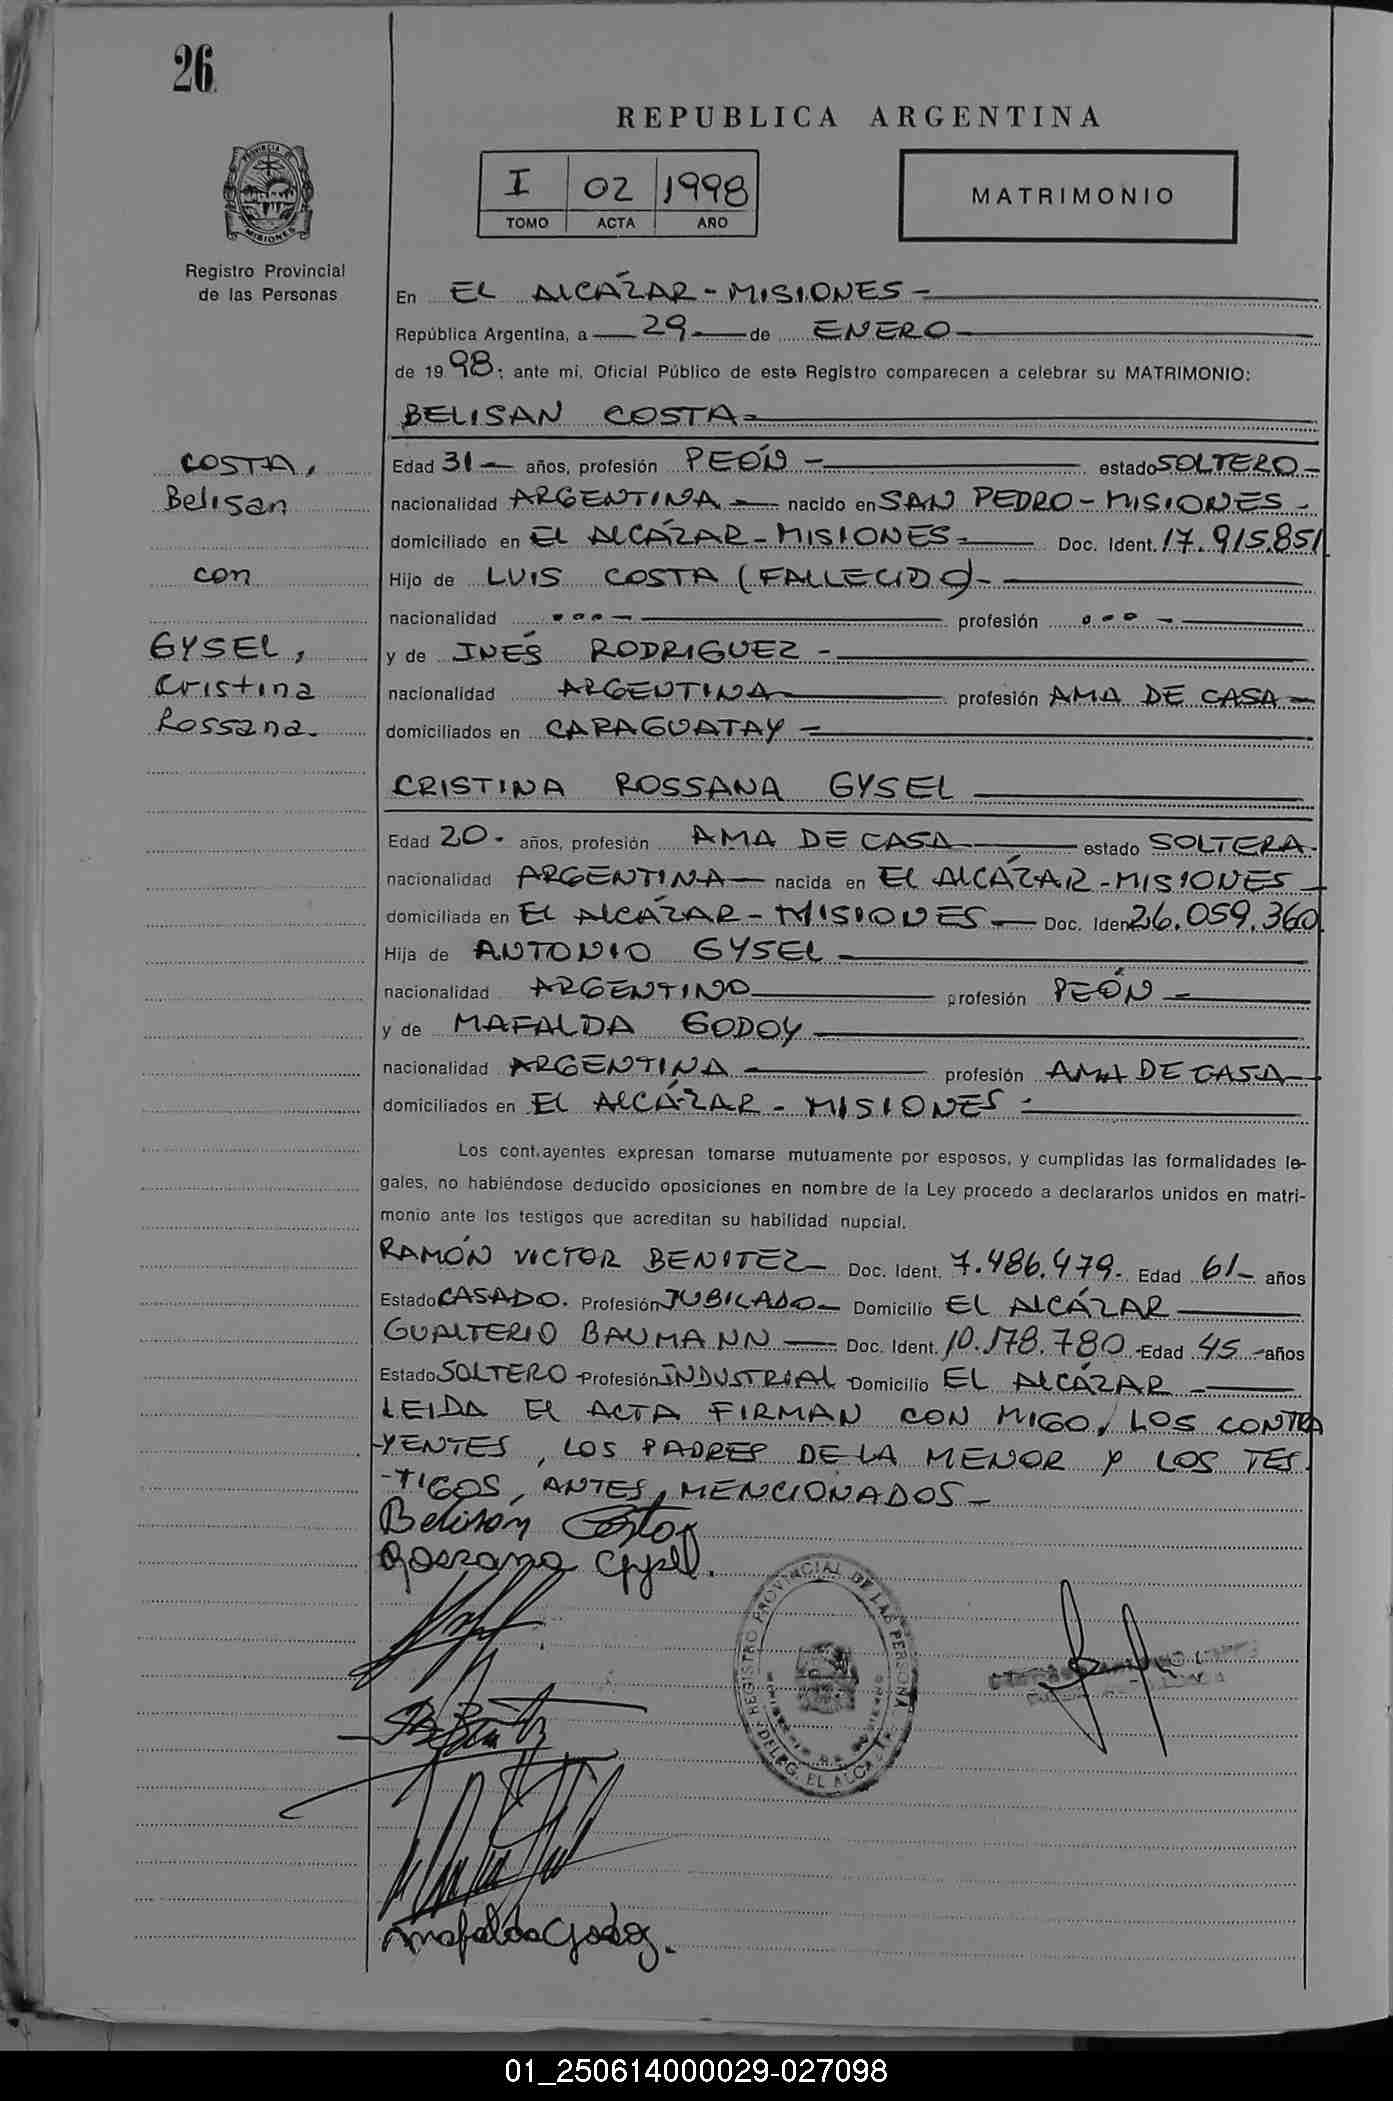 26
REPUBLICA ARGENTINA
I 02 1998
TOMO ACTA AÑO
MATRIMONIO
PROVINCIA DE MISIONES
Registro Provincial
de las Personas
En EL ALCÁZAR - MISIONES -
República Argentina, a - 29 - de ENERO -
de 1998; ante mí, Oficial Público de este Registro comparecen a celebrar su MATRIMONIO:
BELISAN COSTA -
COSTA,
Belisan
con
GYSEL,
Cristina
Rossana.
Edad 31 - años, profesión PEÓN - estado SOLTERO -
nacionalidad ARGENTINA - nacido en SAN PEDRO - MISIONES -
domiciliado en EL ALCÁZAR - MISIONES - Doc. Ident. 17.915.851
Hijo de LUIS COSTA (FALLECIDO) -
nacionalidad ... - profesión ... -
y de INÉS RODRIGUEZ -
nacionalidad ARGENTINA - profesión AMA DE CASA -
domiciliados en CARAGUATAY -
CRISTINA ROSSANA GYSEL
Edad 20 - años, profesión AMA DE CASA - estado SOLTERA -
nacionalidad ARGENTINA - nacida en EL ALCÁZAR - MISIONES -
domiciliada en EL ALCÁZAR - MISIONES - Doc. Iden 26.059.360
Hija de ANTONIO GYSEL -
nacionalidad ARGENTINO - profesión PEÓN -
y de MAFALDA GODOY -
nacionalidad ARGENTINA - profesión AMA DE CASA -
domiciliados en EL ALCÁZAR - MISIONES -
Los cont.ayentes expresan tomarse mutuamente por esposos, y cumplidas las formalidades le-
gales, no habiéndose deducido oposiciones en nombre de la Ley procedo a declararlos unidos en matri-
monio ante los testigos que acreditan su habilidad nupcial.
RAMÓN VICTOR BENITEZ - Doc. Ident. 7.486.479 - Edad 61 - años
Estado CASADO. Profesión JUBILADO - Domicilio EL ALCÁZAR
GUALTERIO BAUMANN - Doc. Ident. 10.178.780 - Edad 45 - años
Estado SOLTERO - Profesión INDUSTRIAL - Domicilio EL ALCÁZAR -
LEIDA EL ACTA FIRMAN CON MIGO, LOS CONTRA
-YENTES, LOS PADRES DE LA MENOR Y LOS TES
-TIGOS, ANTES, MENCIONADOS -
Belison Costa
Rossana Gysel.
REGISTRO PROVINCIAL DE LAS PERSONAS
DELEG. EL ALCAZAR
Mafalda Godoy.
01_250614000029-027098